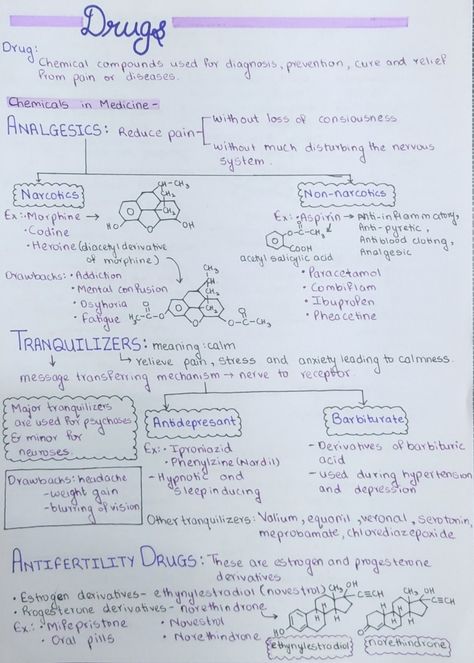 Drugs
Drug:
Chemical compounds used for diagnosis, prevention, cure and relief
from pain or diseases.
Chemicals in Medicine -
ANALGESICS: Reduce pain
without loss of consiousness
without much disturbing the nervous
system.
Narcotics
Ex: • Morphine →
• Codine
• Heroine (diacetyl derivative
of morphine)
Drawbacks: • Addiction
• Mental confusion
• Osyhoria
• Fatigue
CH-CH₃
CH₂
CH₂
HO
O
OH
CH-CH₃
CH₂
CH₂
H₃C-C-O
O
O
O-C-CH₃
O
Non-narcotics
Ex: • Aspirin → Anti-inflammatory,
Anti-pyretic,
Antiblood cloting,
Analgesic
O
O-C-CH₃
COOH
acetyl salicylic acid
• Paracetamol
• Combiflam
• Ibuprofen
• Pheacetine
TRANQUILIZERS: meaning: calm
relieve pain, stress and anxiety leading to calmness.
message transferring mechanism → nerve to receptor.
Major tranquilizers
are used for psychoses
& minor for
neuroses.
Drawbacks: headache
- weight gain
- blurring of vision
Antidepresant
Ex: • Iproniazid
• Phenylzine (Nardil)
- Hypnotic and
sleep inducing
Barbiturate
- Derivatives of barbituric
acid
- used during hypertension
and depression
Other tranquilizers: Valium, equanil, veronal, serotonin,
meprobamate, chlorediazepoxide
ANTIFERTILITY DRUGS: These are estrogen and progesterone
derivatives
• Estrogen derivatives - ethynylestradiol (novestrol)
• Progesterone derivatives - norethindrone
Ex: • Mifepristone
• Oral pills
• Novestrol
• Norethindrone
CH₃ OH
C≡CH
H
H
H
HO
ethynylestradiol
CH₃ OH
C≡CH
H
H
H
H
O
norethindrone